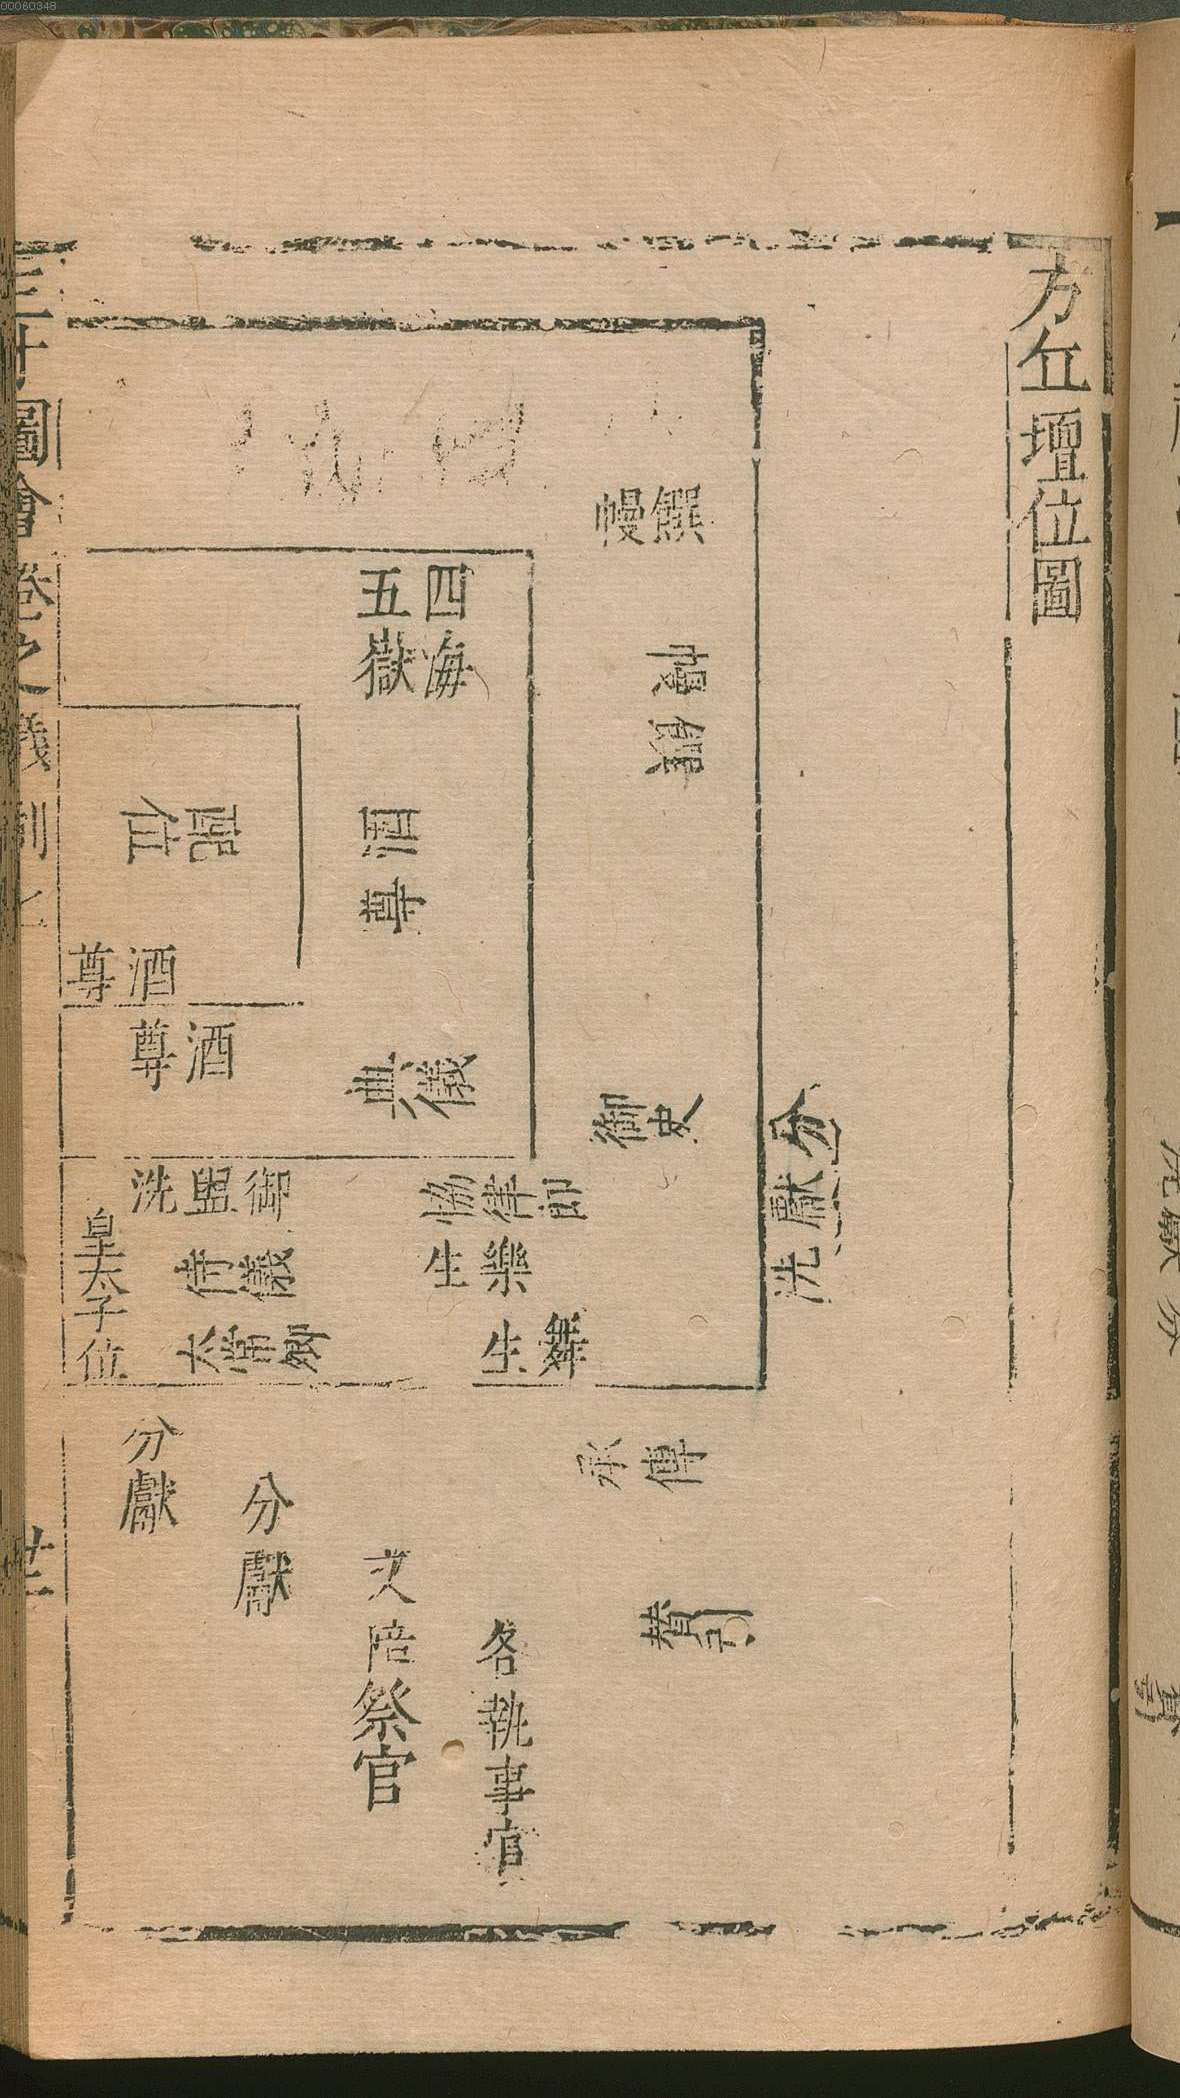 00060348
方丘壇位圖
饌幔
饌幔
四海
五嶽
酒尊
配位
酒尊
酒尊
典儀
御史
分獻洗
御盥洗
侍儀
太常卿
皇太子位
協律郎
樂生
舞生
分獻
分獻
文陪祭官
各執事官
傳承
贊引
三才圖會卷之儀制七